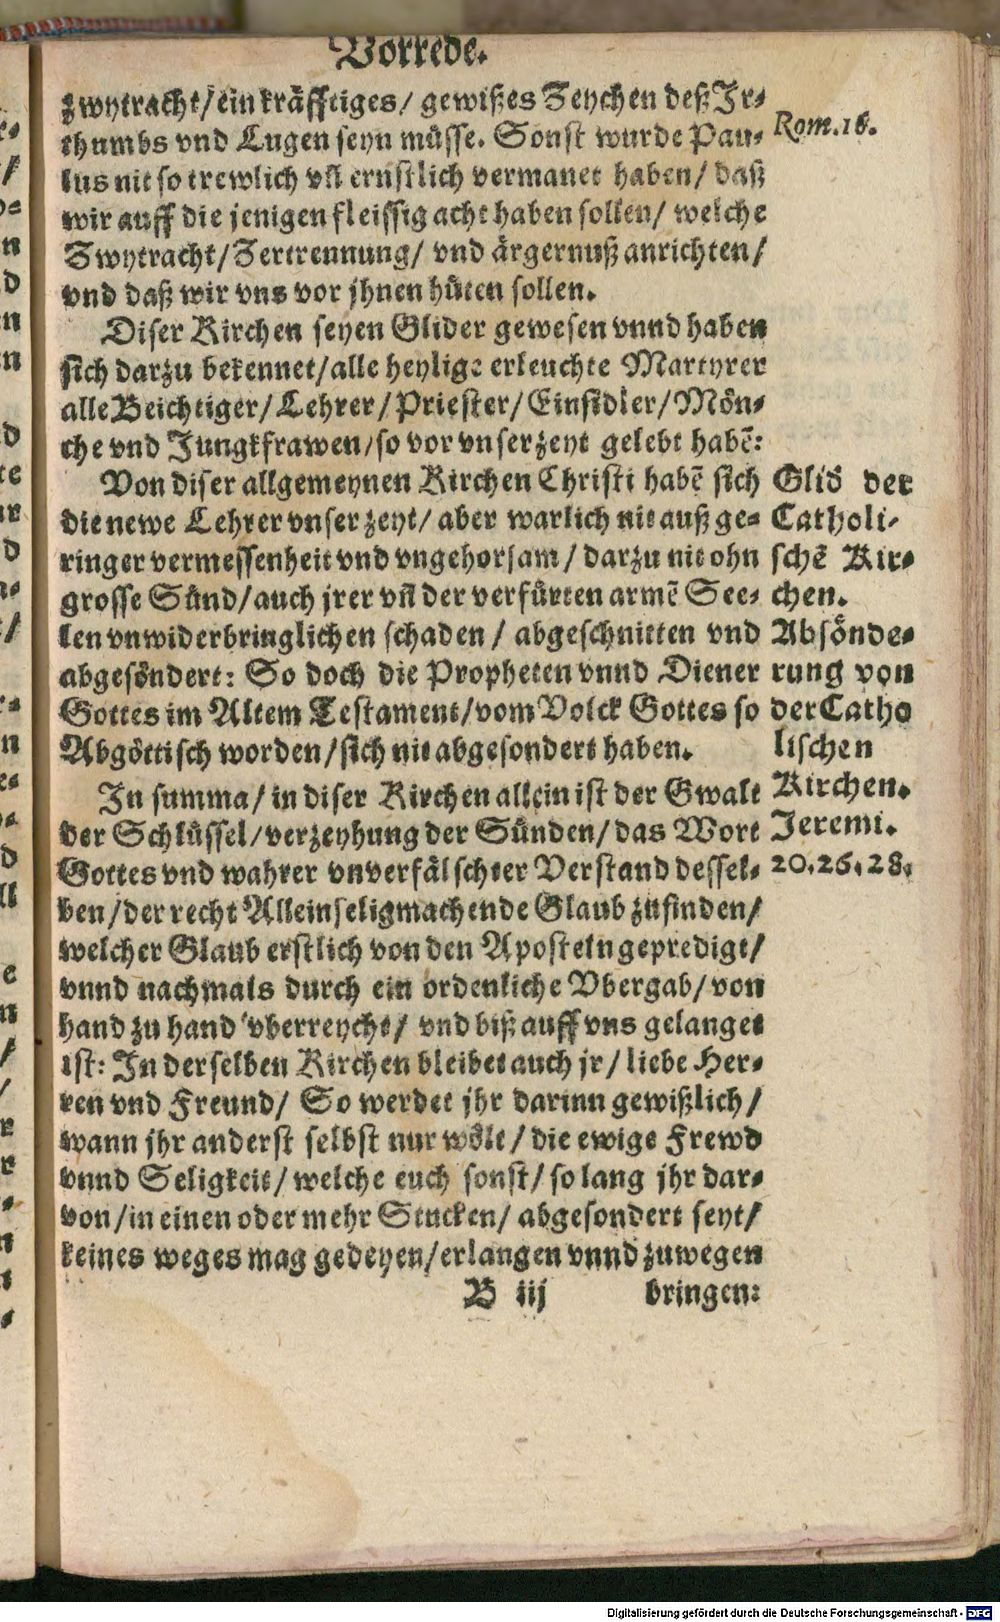 Vorrede.
zwytracht/ein kräfftiges/ gewißes Zeychen deß Jr⸗
thumbs vnd Lugen seyn müsse. Sonst wurde Pau⸗
lus nit so trewlich vñ ernstlich vermanet haben/ daß
wir auff die jenigen fleissig acht haben sollen/ welche
Zwytracht/Zertrennung/ vnd ärgernuß anrichten/
vnd daß wir vns vor jhnen hüten sollen.
Diser Kirchen seyen Glider gewesen vnnd haben
sich darzu bekennet/alle heylige erleuchte Martyrer
alle Beichtiger/Lehrer/Priester/Einsidler/Mön⸗
che vnd Jungkfrawen/so vor vnser zeyt gelebt habẽ:
Von diser allgemeynen Kirchen Christi habẽ sich
die newe Lehrer vnser zeyt/ aber warlich nit auß ge⸗
ringer vermessenheit vnd vngehorsam/ darzu nit ohn
grosse Sünd/auch jrer vñ der verfürten armẽ See⸗
len vnwiderbringlichen schaden/ abgeschnitten vnd
abgesöndert: So doch die Propheten vnnd Diener
Gottes im Altem Testament/vom Volck Gottes so
Abgöttisch worden/sich nit abgesondert haben.
In summa/ in diser Kirchen allein ist der Gwalt
der Schlüssel/verzeyhung der Sünden/das Wort
Gottes vnd wahrer vnverfälschter Verstand dessel⸗
ben/der recht Alleinseligmachende Glaub zufinden/
welcher Glaub erstlich von den Aposteln gepredigt/
vnnd nachmals durch ein ordenliche Vbergab/von
hand zu hand vberreycht/ vnd biß auff vns gelanget
ist: In derselben Kirchen bleibet auch jr/ liebe Her⸗
ren vnd Freund/ So werdet jhr darinn gewißlich/
wann jhr anderst selbst nur wölt/die ewige Frewd
vnnd Seligkeit/ welche euch sonst/ so lang jhr dar⸗
von/in einen oder mehr Stucken/ abgesondert seyt/
keines weges mag gedeyen/erlangen vnnd zuwegen
B iij bringen:
Rom.16.
Glid der
Catholi⸗
schẽ Kir⸗
chen.
Absönde⸗
rung von
der Catho
lischen
Kirchen.
Jeremi.
20.26.28.
Digitalisierung gefördert durch die Deutsche Forschungsgemeinschaft - DFG